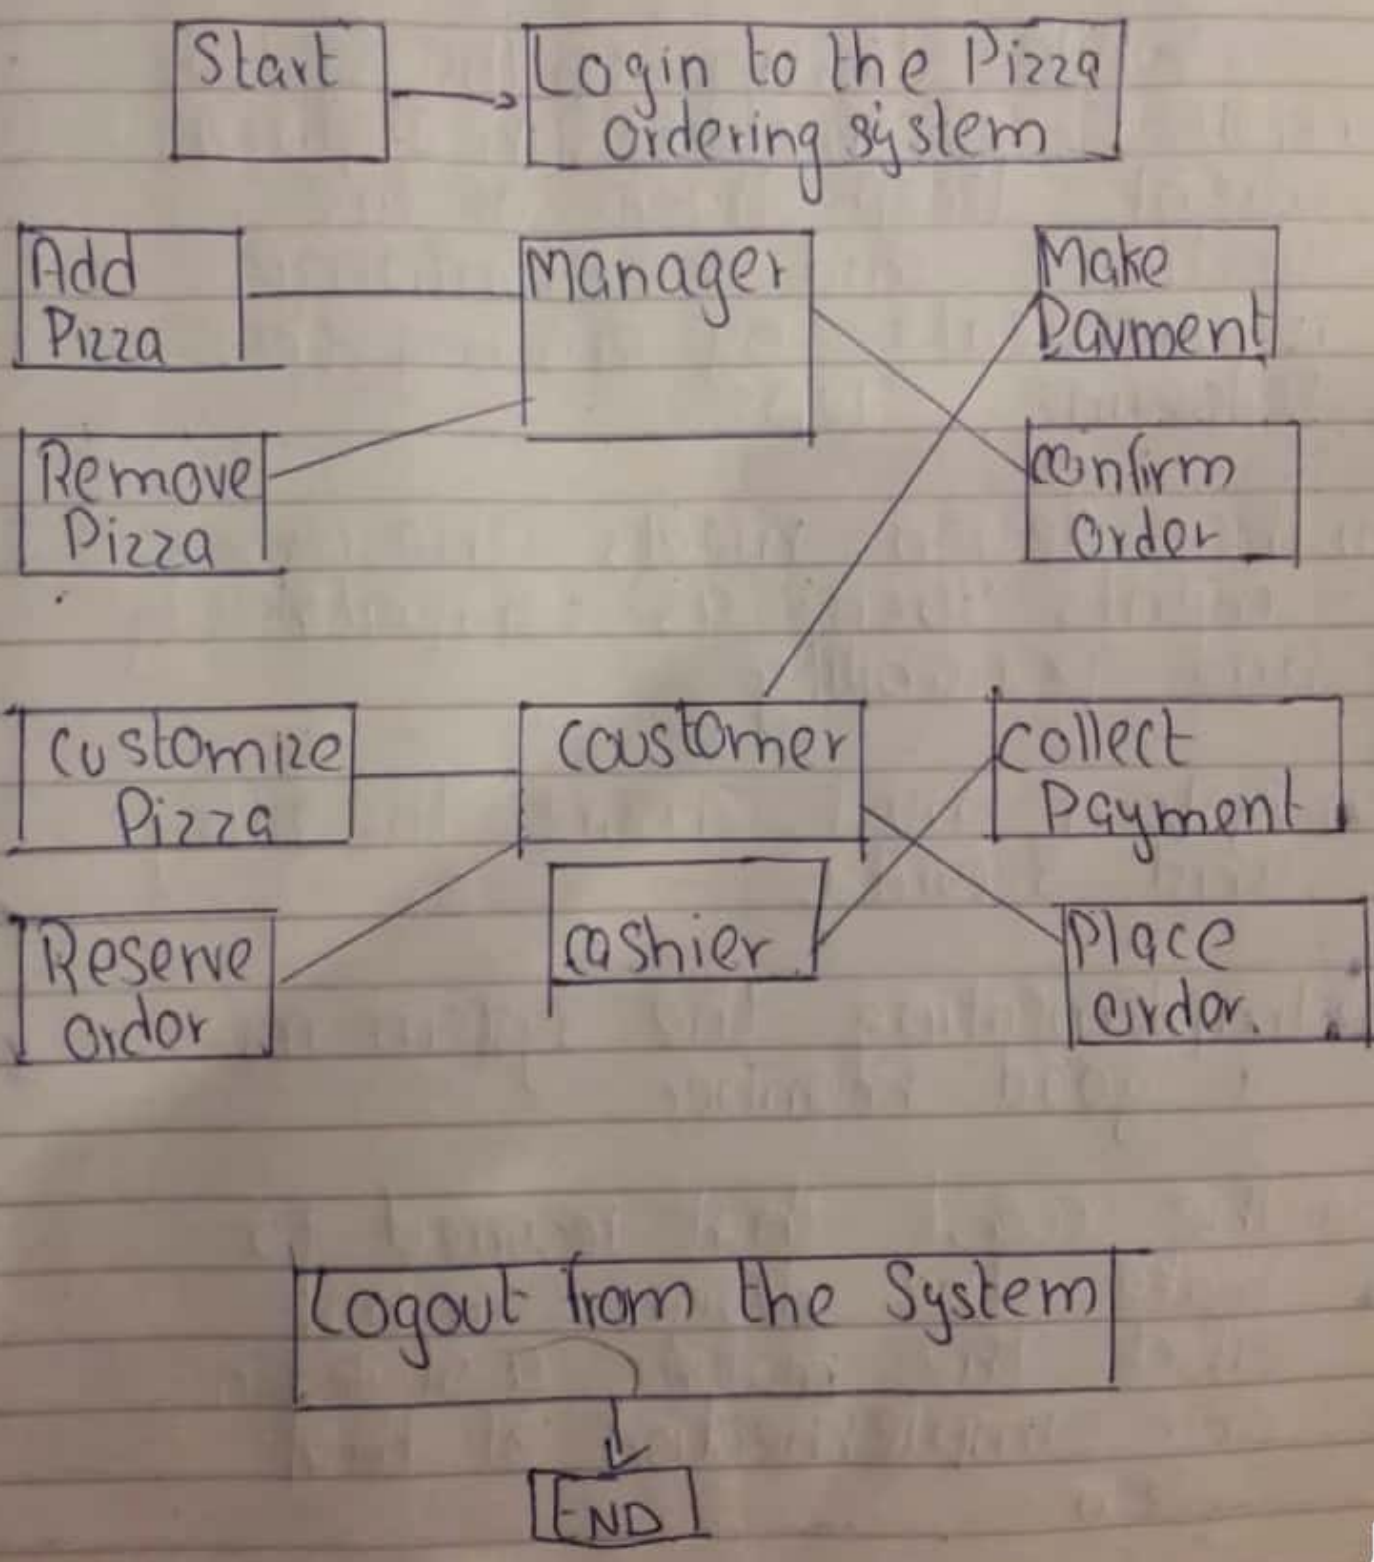 Start
Login to the Pizza
ordering system
Add
Pizza
Manager
Make
Payment
Remove
Pizza
confirm
order
customize
Pizza
coustomer
collect
Payment
Reserve
ordor
cashier
Place
order.
Logout from the System
END